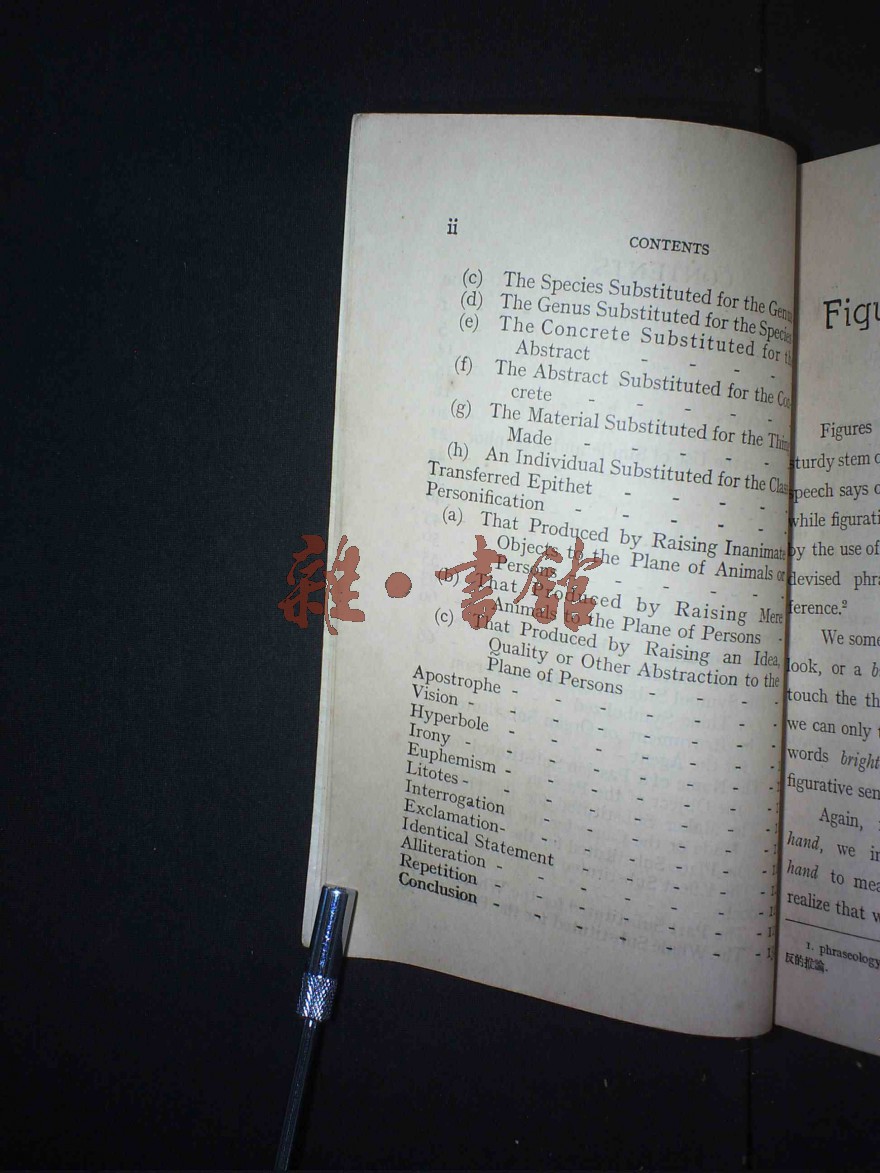 ii
CONTENTS
(c) The Species Substituted for the Genu
(d) The Genus Substituted for the Specie
(e) The Concrete Substituted for th
Abstract - - - -
(f) The Abstract Substituted for the Con-
crete - - - - -
(g) The Material Substituted for the Thing
Made - - - - -
(h) An Individual Substituted for the Class
Transferred Epithet - - - -
Personification - - - - -
(a) That Produced by Raising Inanimate
Objects to the Plane of Animals or
Persons - - - - -
(b) That Produced by Raising Mere
Animals to the Plane of Persons -
(c) That Produced by Raising an Idea,
Quality or Other Abstraction to the
Plane of Persons - - - -
Apostrophe - - - - - - -
Vision - - - - - - -
Hyperbole - - - - - -
Irony - - - - - - -
Euphemism - - - - - - -
Litotes - - - - - - -
Interrogation - - - - - -
Exclamation- - - - - - -
Identical Statement - - - -
Alliteration - - - - - -
Repetition - - - - - -
Conclusion - - - - -
雜·書館
Figu
Figures
sturdy stem o
speech says o
while figurati
by the use of
devised phra
ference.²
We some
look, or a b
touch the th
we can only
words bright
figurative sen
Again,
hand, we i
hand to mea
realize that w
1. phraseology
反的推論.